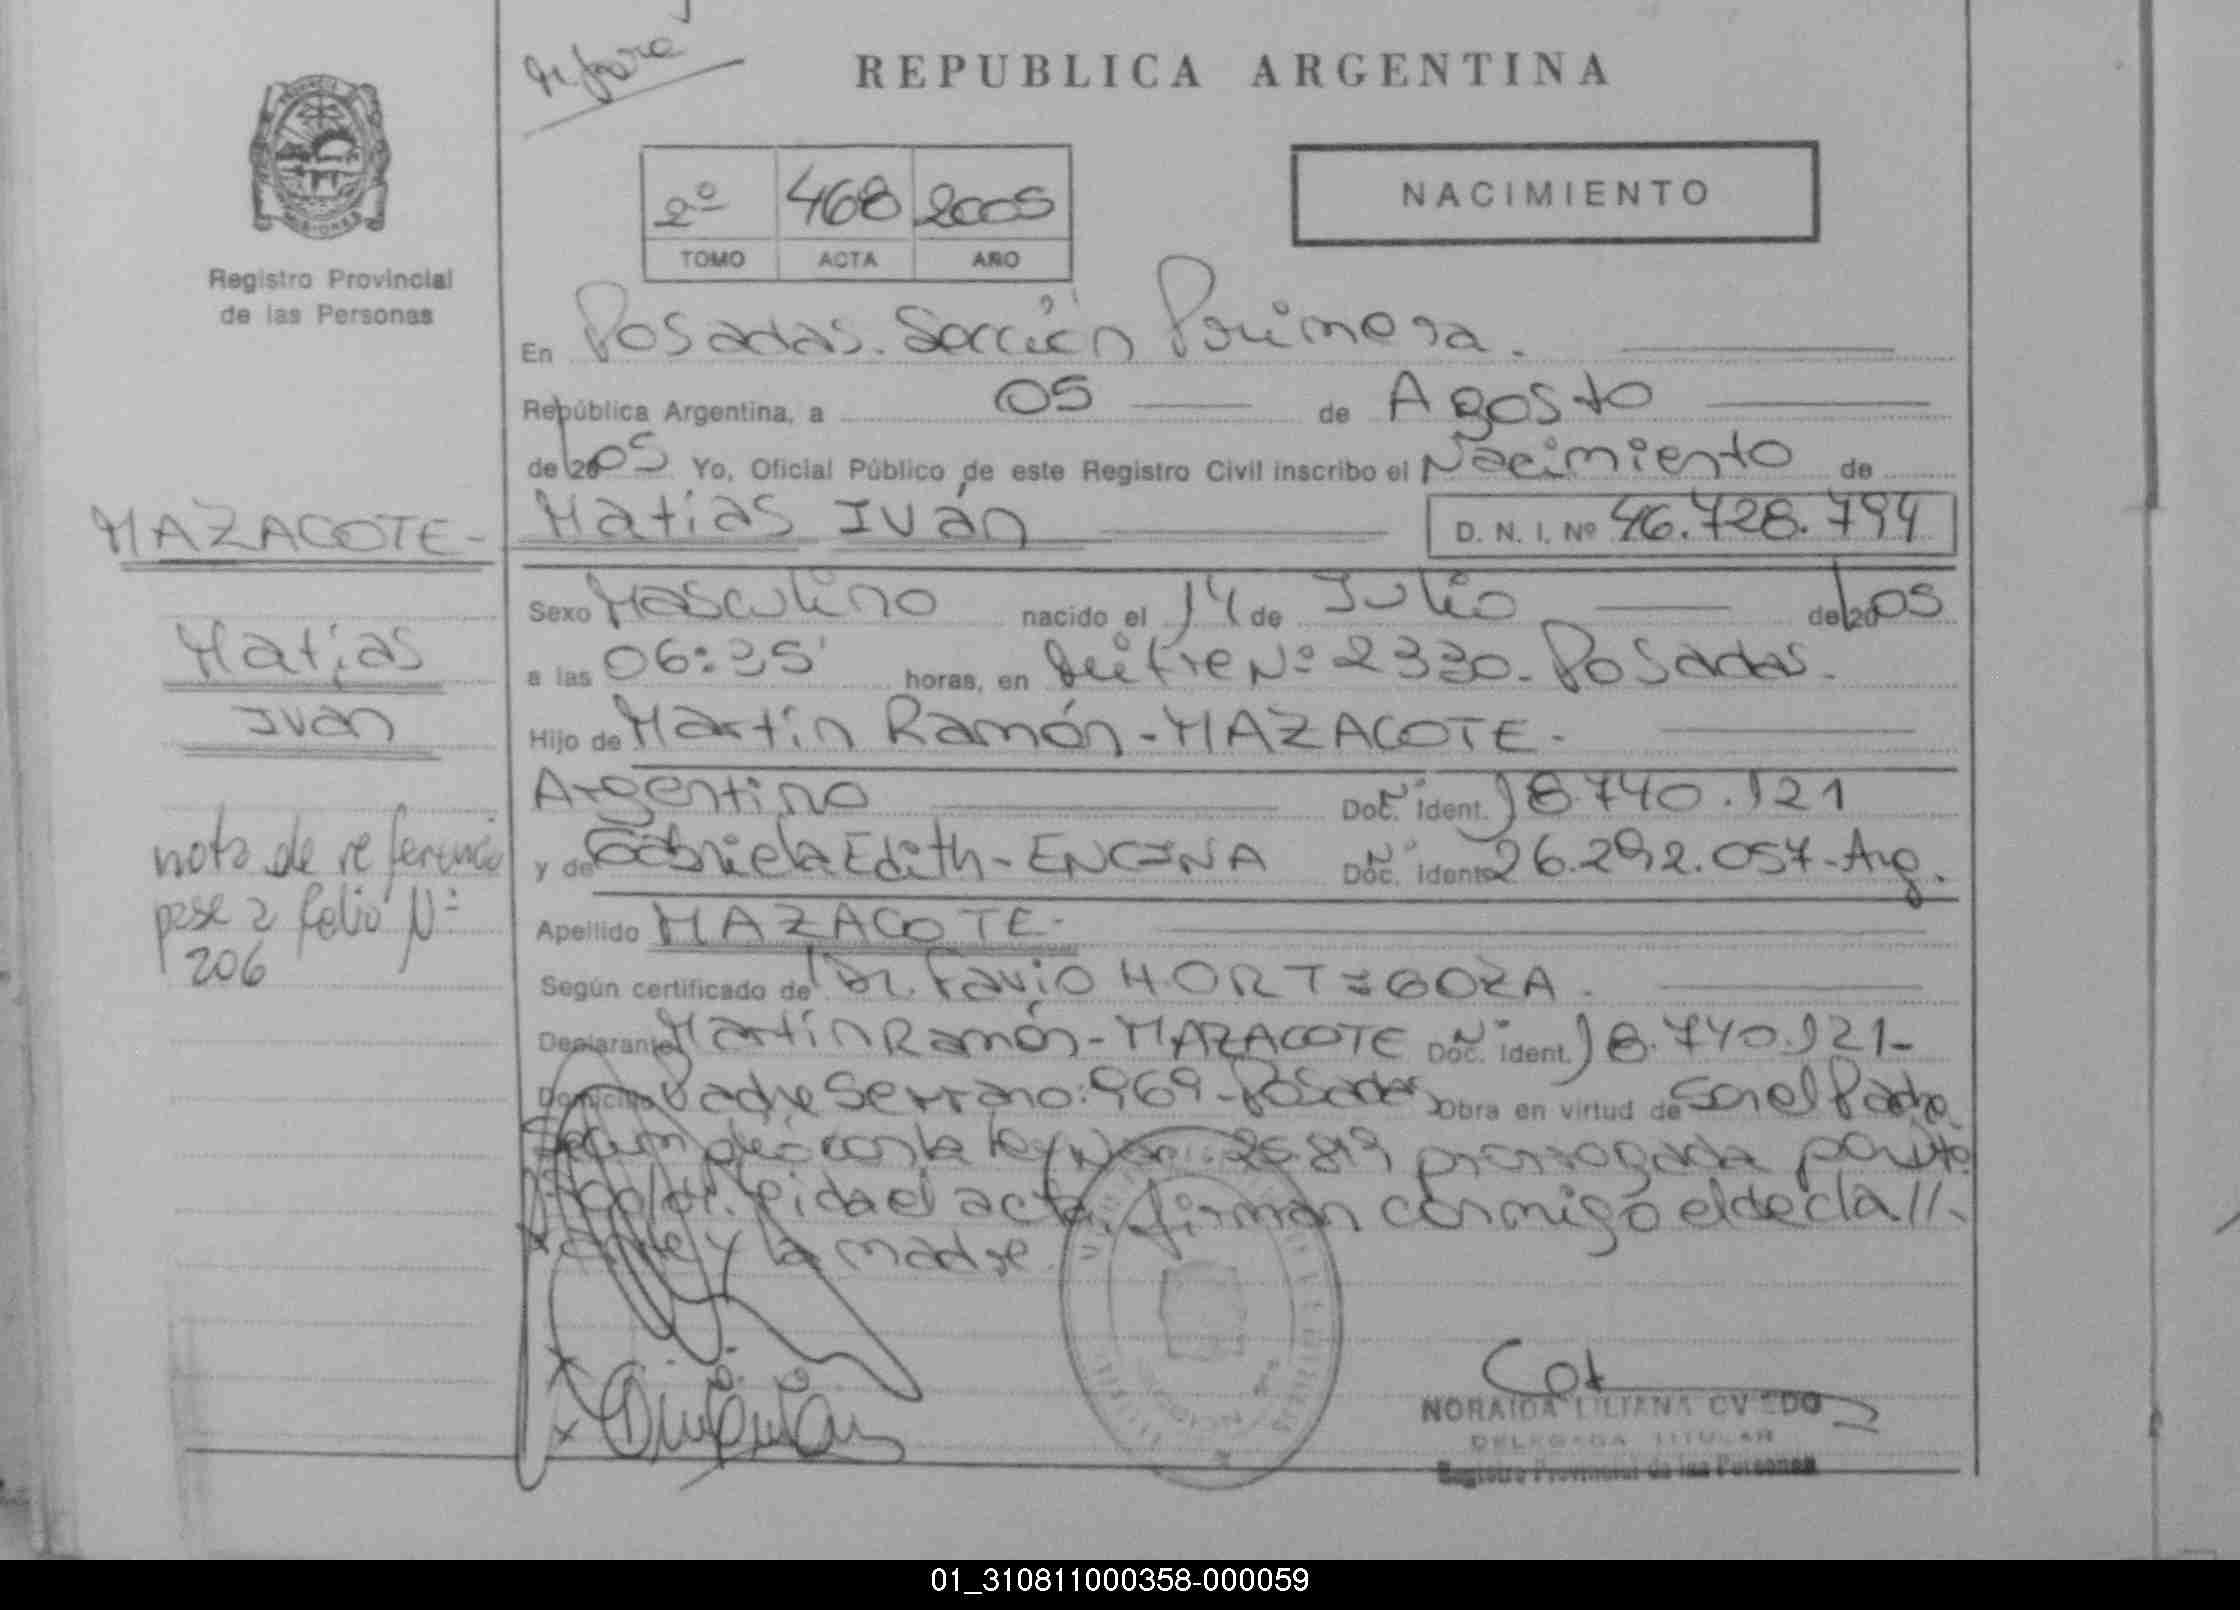 REPUBLICA ARGENTINA
Registro Provincial
de las Personas
2º 468 2005
TOMO ACTA AÑO
NACIMIENTO
En Posadas. Sección Primera.
República Argentina, a 05 de Agosto
de 2005 Yo, Oficial Público de este Registro Civil inscribo el Nacimiento de
MAZACOTE-
Matías Iván D. N. I. Nº 46.728.794
Sexo Masculino nacido el 14 de Julio de 2005
Matías
Iván
a las 06:35' horas, en Mitre Nº 2330. Posadas.
Hijo de Martín Ramón - MAZACOTE-
Argentino Doc. Ident. 18.740.121
y de Gabriela Edith - ENCINA Doc. Ident. 26.292.057-Arg.
nota de referencia
pase a folio Nº
206
Apellido MAZACOTE-
Según certificado de Dr. Favio HORTIGOZA.
Declarante Martín Ramón - MAZACOTE Doc. Ident. 18.740.121-
Domicilio Padre Serrano: 969 - Posadas Obra en virtud de Ser el Padre
la Ley 25.819 prorrogada por
leida el acta, firman conmigo el decla//-
rante y la madre.
NORAIDA LILIANA OVIEDO
DELEGADA TITULAR
Registro Provincial de las Personas
01_310811000358-000059